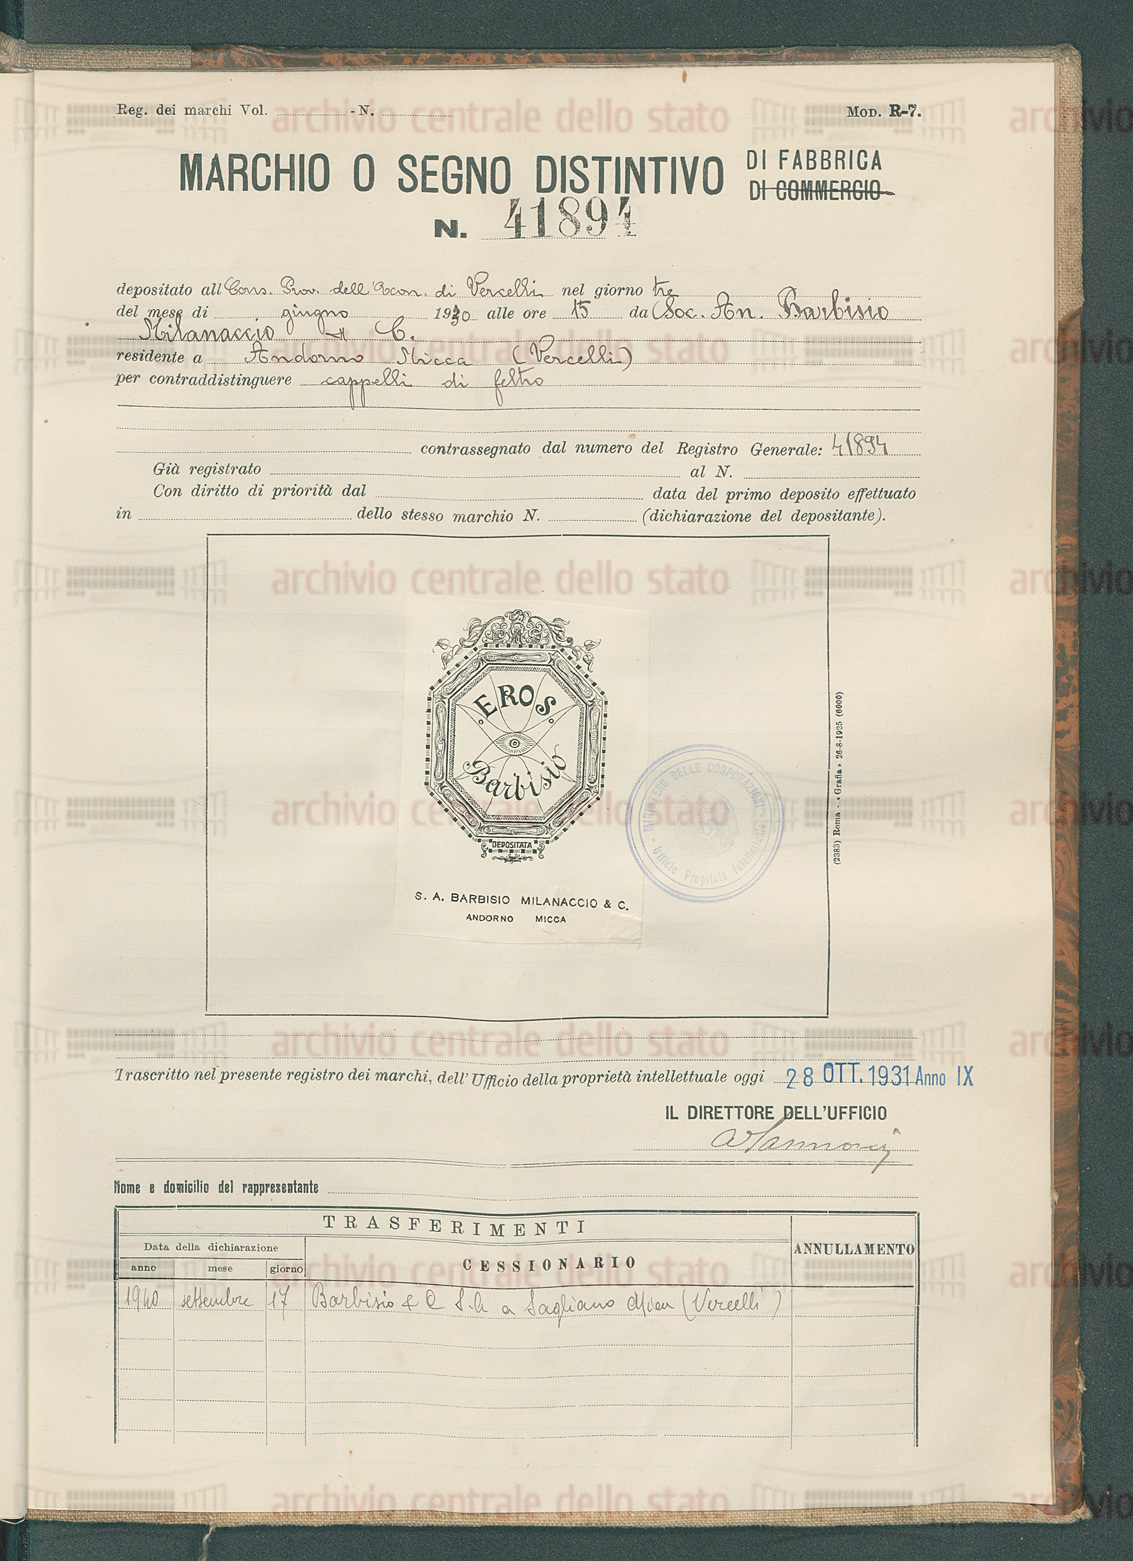 Reg. dei marchi Vol. - N.
MOD. R-7.
MARCHIO O SEGNO DISTINTIVO DI FABBRICA
DI COMMERCIO
N. 41894
depositato all Cons. Prov. dell'Econ. di Vercelli nel giorno tre
del mese di giugno 1930 alle ore 15 da Soc. An. Barbisio
Milanaccio & C.
residente a Andorno Micca (Vercelli)
per contraddistinguere cappelli di feltro
contrassegnato dal numero del Registro Generale: 41894
Già registrato al N.
Con diritto di priorità dal data del primo deposito effettuato
in dello stesso marchio N. (dichiarazione del depositante).
EROS
Barbisio
DEPOSITATA
S. A. BARBISIO MILANACCIO & C.
ANDORNO MICCA
MINISTERO DELLE CORPORAZIONI
Ufficio Proprietà
(2383) Roma - «Grafia» 26-8-1925 (6000)
Trascritto nel presente registro dei marchi, dell'Ufficio della proprietà intellettuale oggi 28 OTT. 1931 Anno IX
IL DIRETTORE DELL'UFFICIO
Nome e domicilio del rappresentante
TRASFERIMENTI
Data della dichiarazione
ANNULLAMENTO
anno mese giorno
CESSIONARIO
1940 settembre 17 Barbisio & C S.A. a Sagliano Micca (Vercelli)
archivio centrale dello stato